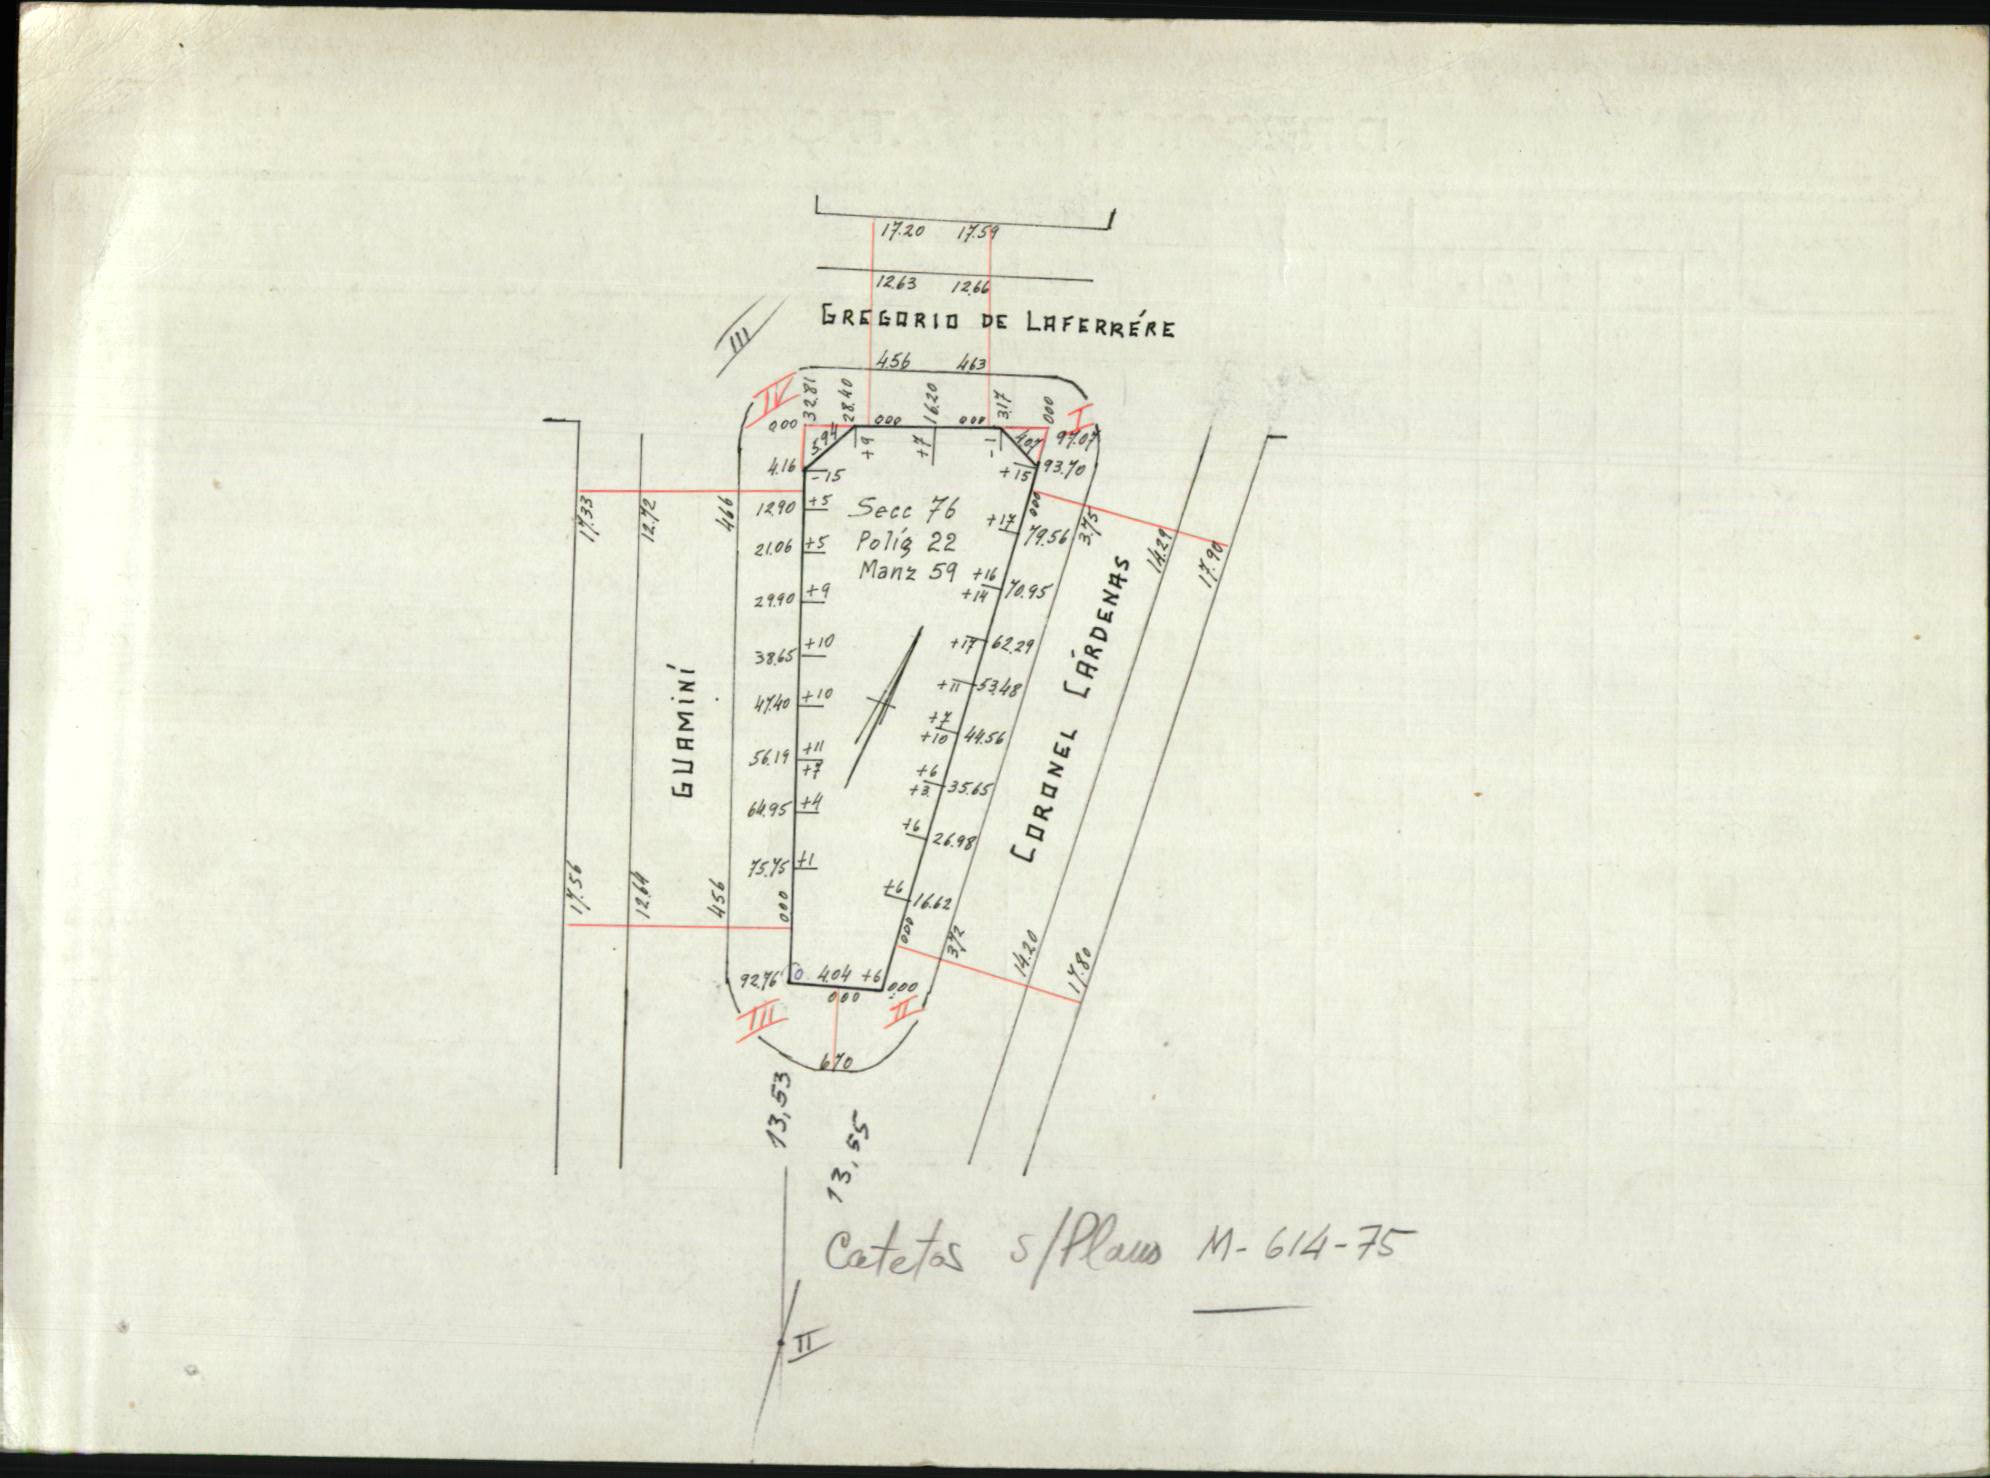 17.20 17.59
12.63 12.66
GREGORIO DE LAFERRÉRE
III
456 463
IV
32.81
28.40
16.20
3.17
000
I
000
000
000
5.94
+9
+7
-1
407
97.07
4.16
-15
+15
93.70
17.33
12.72
466
12.90 +5
Secc 76
Políg 22
Manz 59
000
+17
79.56
3.75
14.29
17.90
21.06 +5
29.90 +9
+16
+14
70.95
38.65 +10
+17 62.29
47.40 +10
+11 53.48
+7
+10
44.56
56.19 +11
+7
+6
+3
35.65
64.95 +4
+6 26.98
75.75 +1
+6 16.62
GUAMINÍ
CORONEL CÁRDENAS
17.56
12.64
456
000
000
372
14.20
17.80
92.76 0 4.04 +6
000
000
III
II
670
13,53
13,55
Catetos s/Plano M-614-75
II